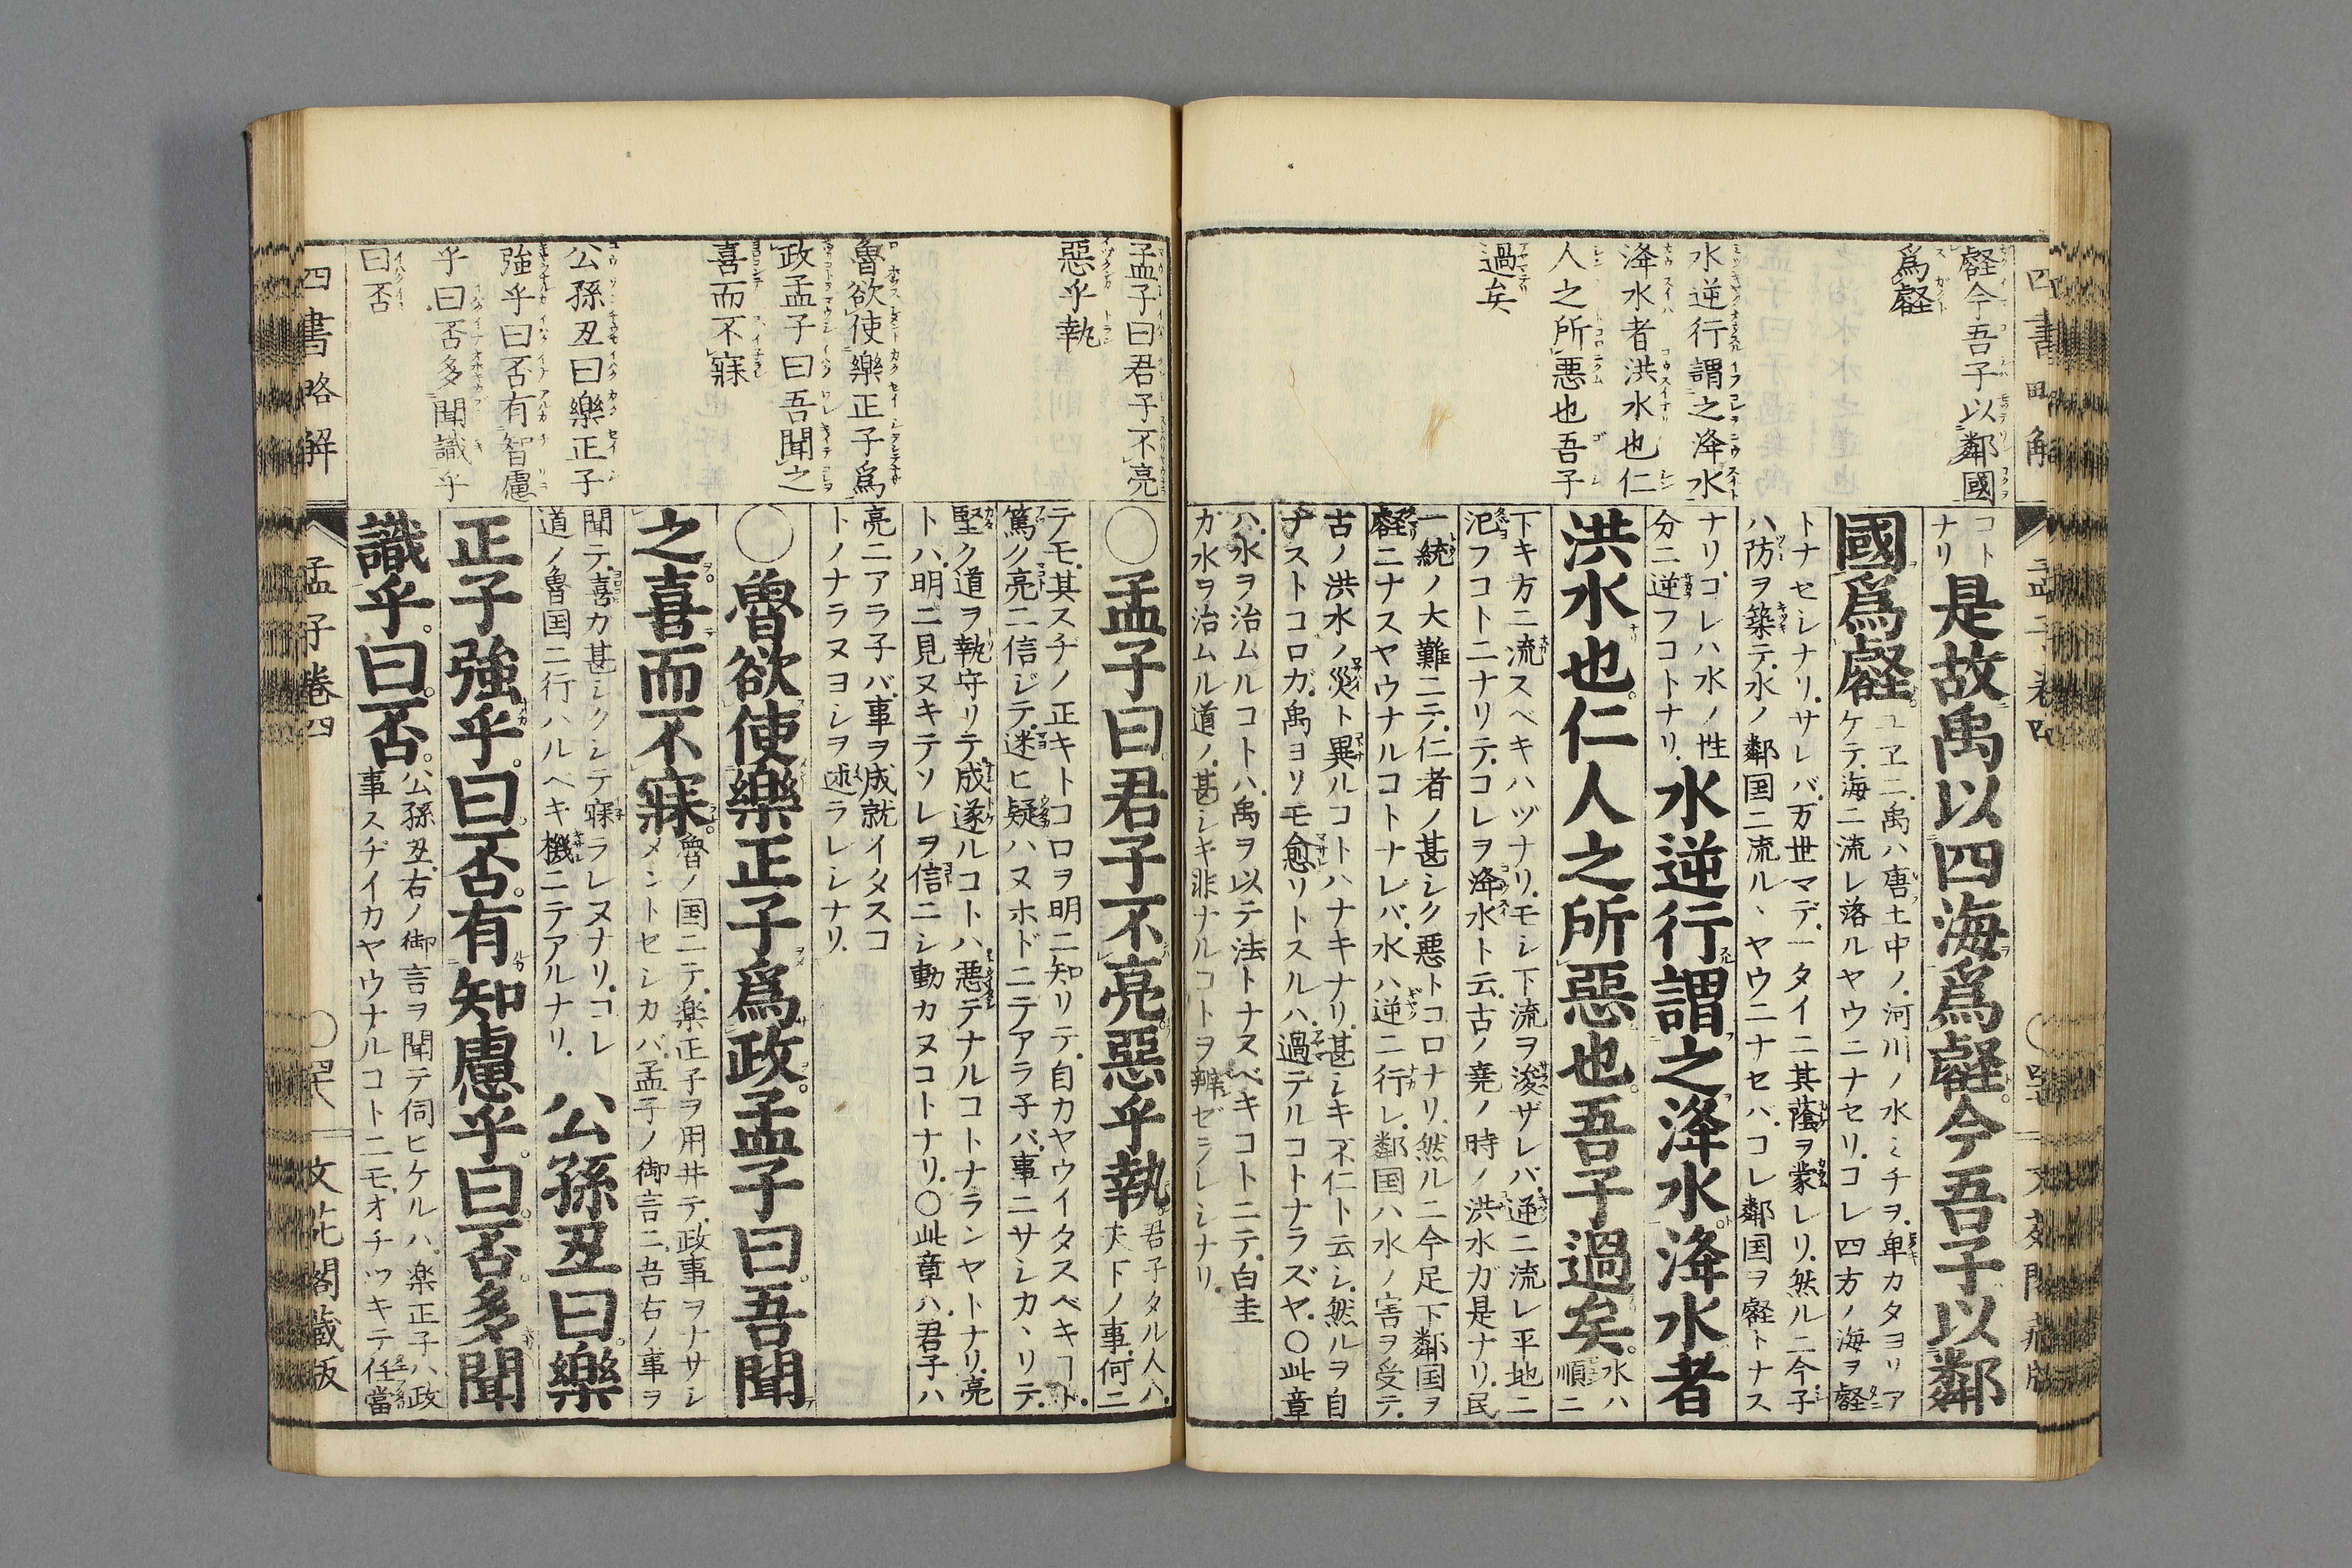 壑今吾子以鄰國
爲壑
水逆行謂之洚水
洚水者洪水也仁
人之所惡也吾子
過矣
コトナリ
是故禹以四海爲壑。今吾子以鄰
國爲壑。
ユヱニ禹ハ唐土中ノ河川ノ水ミチヲ卑カタヨリア
ケテ海ニ流レ落ルヤウニナセリ.コレ四方ノ海ヲ壑
トナセシナリ.サレバ万世マデ一タイニ其蔭ヲ蒙レリ.然ルニ今子
ハ防ヲ築テ水ノ鄰国ニ流ル丶ヤウニナセバ.コレ鄰国ヲ壑トナス
ナリ.コレハ水ノ性
分ニ逆フコトナリ.
水逆行謂之洚水。洚水者
洪水也。仁人之所惡也。吾子過矣。
水ハ
順ニ
下キ方ニ流スベキハヅナリ.モシ下流ヲ浚ザレバ.逆ニ流レ平地ニ
氾フコトニナリテ.コレヲ洚水ト云.古ノ堯ノ時ノ洪水ガ是ナリ.民
一統ノ大難ニテ.仁者ノ甚シク悪トコロナリ.然ルニ今足下鄰国ヲ
壑ニナスヤウナルコトナレバ.水ハ逆ニ行レ.鄰国ハ水ノ害ヲ受テ.
古ノ洪水ノ災ト異ルコトハナキナリ.甚シキ不仁ト云シ.然ルヲ自
ナストコロガ.禹ヨリモ愈リトスルハ.過デルコトナラズヤ.〇此章
ハ.水ヲ治ムルコトハ.禹ヲ以テ法トナスベキコトニテ.白圭
カ水ヲ治ムル道ノ.甚シキ非ナルコトヲ辨ゼラレシナリ.
四書略解
孟子巻四
孟子曰君子不亮
惡乎執
魯欲使樂正子爲
政孟子曰吾聞之
喜而不寐
公孫丑曰樂正子
強乎曰否有智慮
乎曰否多聞識乎
曰否
〇孟子曰。君子不亮。惡乎執。
君子タル人ハ.
天下ノ事.何ニ
テモ.其スヂノ正キトコロヲ明ニ知リテ.自カヤウイタスベキコト.
篤ク亮ニ信ジテ.迷ヒ疑ハヌホドニテアラ子バ.事ニサシカ丶リテ.
堅ク道ヲ執守リテ成遂ルコトハ.悪デナルコトナランヤトナリ.亮
トハ.明ニ見ヌキテソレヲ信ニシ動カヌコトナリ.〇此章ハ.君子ハ
亮ニアラ子バ.事ヲ成就イタスコ
トノナラヌヨシヲ述ラレシナリ.
〇魯欲使樂正子爲政。孟子曰。吾聞
之喜而不寐。
魯ノ国ニテ.楽正子ヲ用井テ.政事ヲナサシ
メントセシカバ.孟子ノ御言ニ.吾右ノ事ヲ
聞テ.喜カ甚シクシテ寐ラレヌナリ.コレ
道ノ魯国ニ行ハルベキ機ニテアルナリ.
公孫丑曰。樂
正子強乎。曰否。有知慮乎。曰否。多聞
識乎。曰否。
公孫丑.右ノ御言ヲ聞テ伺ヒケルハ.楽正子ハ政
事スヂイカヤウナルコトニモ.オチツキテ任當
四書略解
孟子巻四
文花閣蔵版